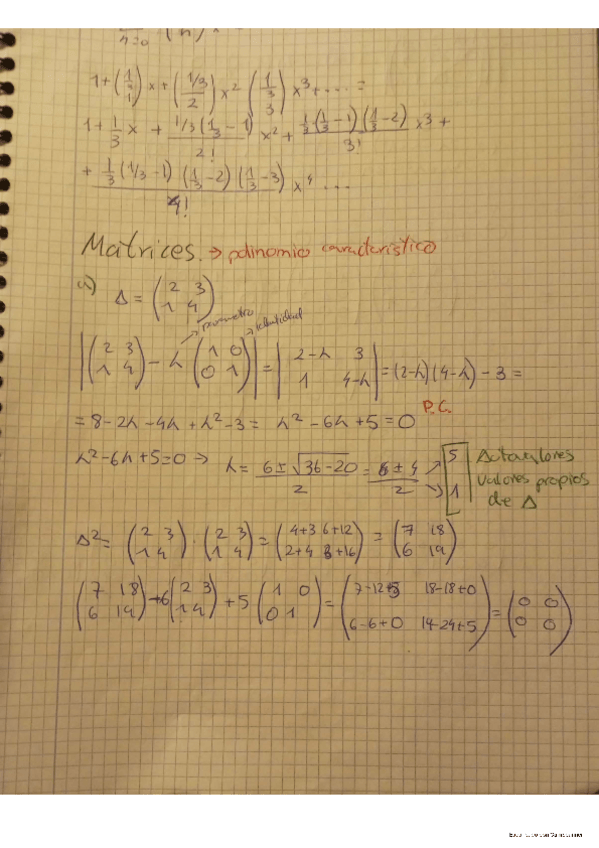 n=0 (n) x
1+(1/3 1)x+(1/3 2)x² (1/3 3)x³+....=
1+1/3 x + 1/3(1/3-1)/2! x² + 1/3(1/3-1)(1/3-2)/3! x³ +
+ 1/3(1/3-1)(1/3-2)(1/3-3)/4! x⁴ ...
Matrices. → polinomio característico
a) A = (2 3; 1 4)
→ parametro → identidad
|(2 3; 1 4) - λ (1 0; 0 1)| = |2-λ 3; 1 4-λ| = (2-λ)(4-λ) - 3 =
= 8-2λ-4λ+λ²-3 = λ²-6λ+5=0 P.C.
λ²-6λ+5=0 → λ = (6±√(36-20))/2 = (6±4)/2 → 5 → 1 Autovalores valores propios de A
A² = (2 3; 1 4) · (2 3; 1 4) = (4+3 6+12; 2+4 3+16) = (7 18; 6 19)
(7 18; 6 19) - 6 (2 3; 1 4) + 5 (1 0; 0 1) = (7-12+5 18-18+0; 6-6+0 19-24+5) = (0 0; 0 0)